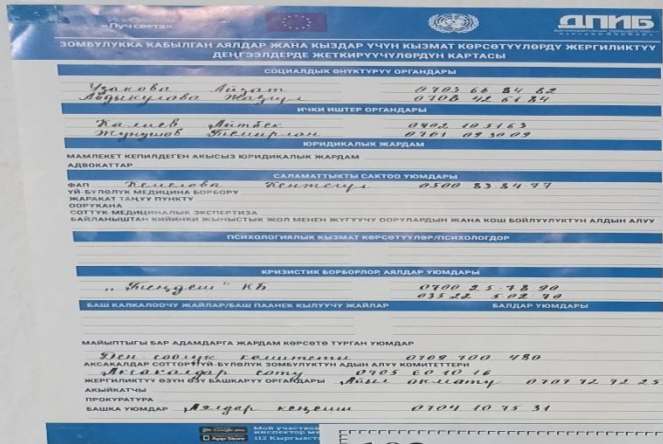 «Луч света»
ДПИБ
ЗОМБУЛУККА КАБЫЛГАН АЯЛДАР ЖАНА КЫЗДАР ҮЧҮН КЫЗМАТ КӨРСӨТҮҮЛӨРДҮ ЖЕРГИЛИКТҮҮ
ДЕҢГЭЭЛДЕРДЕ ЖЕТКИРҮҮЧҮЛӨРДҮН КАРТАСЫ
СОЦИАЛДЫК ӨНҮКТҮРҮҮ ОРГАНДАРЫ
Узакова Айзат 0703 66 84 82
Абдыкулова 0708 42 61 84
ИЧКИ ИШТЕР ОРГАНДАРЫ
Калиев Айтбек 0702 10 51 63
Жунушов Темирлан 0701 09 30 09
ЮРИДИКАЛЫК ЖАРДАМ
МАМЛЕКЕТ КЕПИЛДЕГЕН АКЫСЫЗ ЮРИДИКАЛЫК ЖАРДАМ
АДВОКАТТАР
САЛАМАТТЫКТЫ САКТОО УЮМДАРЫ
ФАП Кемелова 0500 83 84 77
ҮЙ-БҮЛӨЛҮК МЕДИЦИНА БОРБОРУ
ЖАРАКАТ ТАҢУУ ПУНКТУ
ООРУКАНА
СОТТУК-МЕДИЦИНАЛЫК ЭКСПЕРТИЗА
БАЙЛАНЫШТАН КИЙИНКИ ЖЫНЫСТЫК ЖОЛ МЕНЕН ЖУГУУЧУ ООРУЛАРДЫН ЖАНА КОШ БОЙЛУУЛУКТУН АЛДЫН АЛУУ
ПСИХОЛОГИЯЛЫК КЫЗМАТ КӨРСӨТҮҮЛӨР/ПСИХОЛОГДОР
КРИЗИСТИК БОРБОРЛОР, АЯЛДАР УЮМДАРЫ
„Теңдеш" КБ 0700 25-78 90
03522 5 02 70
БАШ КАЛКАЛООЧУ ЖАЙЛАР/БАШ ПААНЕК КЫЛУУЧУ ЖАЙЛАР БАЛДАР УЮМДАРЫ
МАЙЫПТЫГЫ БАР АДАМДАРГА ЖАРДАМ КӨРСӨТӨ ТУРГАН УЮМДАР
Ден-соолук комитети 0709 700 480
АКСАКАЛДАР СОТТОРУ/ҮЙ-БҮЛӨЛҮК ЗОМБУЛУКТУН АДЫН АЛУУ КОМИТЕТТЕРИ
Аксакалдар соту 0705 60 10 16
ЖЕРГИЛИКТҮҮ ӨЗҮН ӨЗҮ БАШКАРУУ ОРГАНДАРЫ Айыл окмоту 0707 72 72 25
АКЫЙКАТЧЫ
ПРОКУРАТУРА
БАШКА УЮМДАР Аялдар кеңеши 0704 10 75 31
App Store
112 Кыргызст